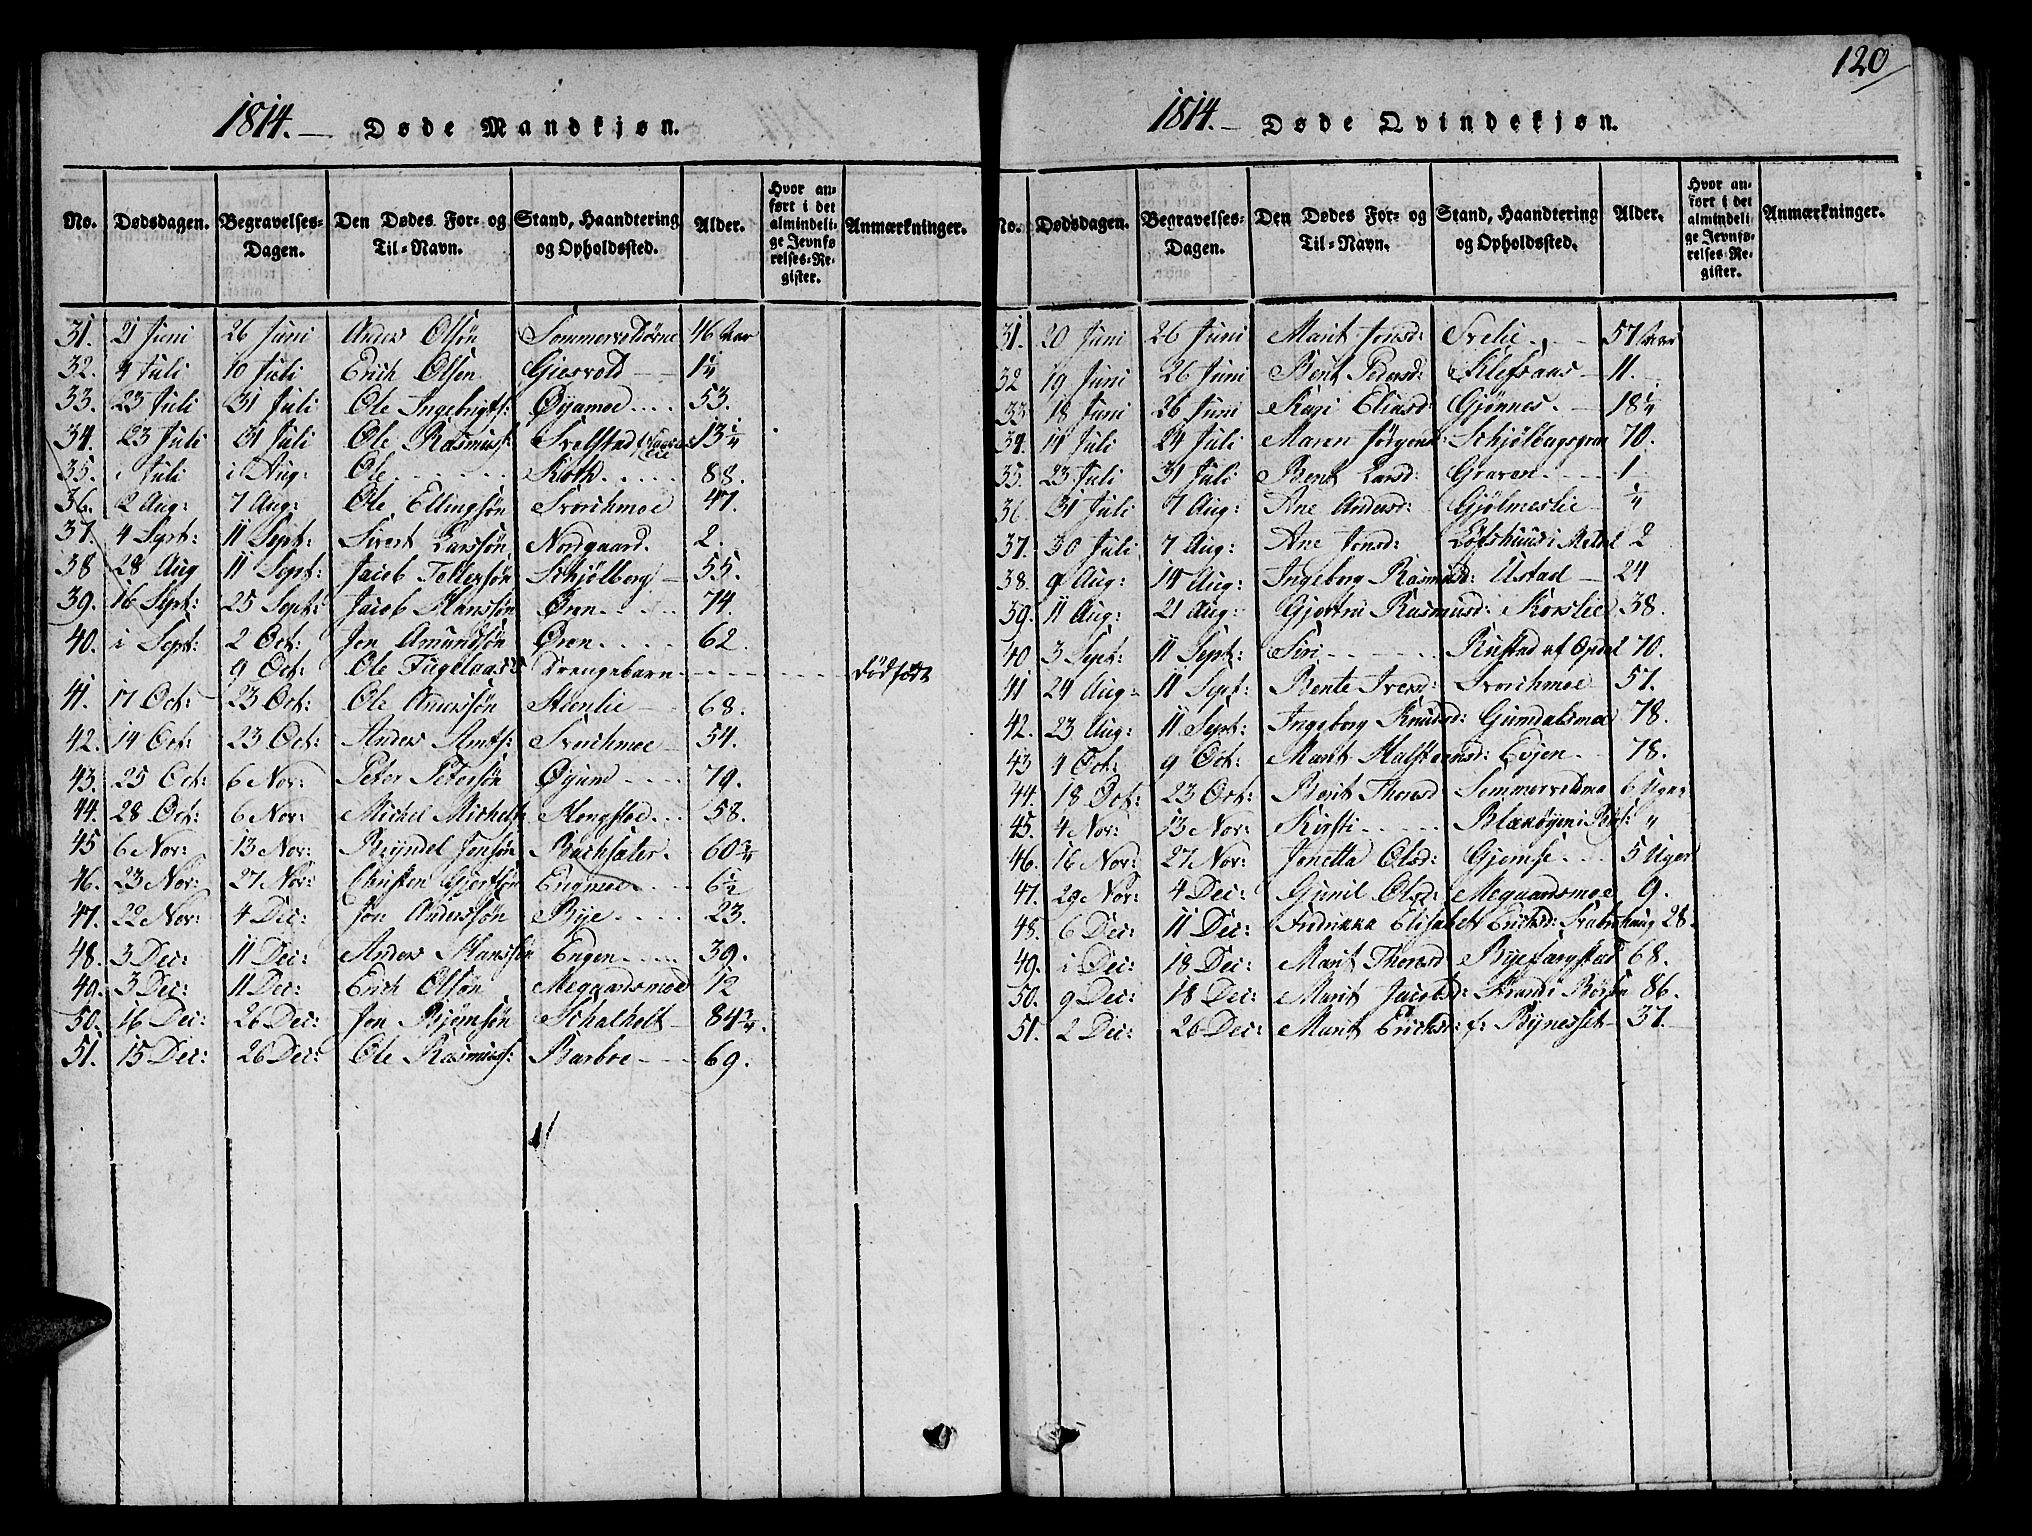 120
1814. Døde Mandkjøn.
No. Dødsdagen. Begravelses-Dagen. Den Dødes For- og Til-Navn. Stand, Haandtering og Opholdssted. Alder. Hvor anført i det almindelige Jevnførelses-Register. Anmærkninger.
31. 21 Juni 26 Juni Anders Olsön 46 Aar
32. 4 Juli 10 Juli Erich Olsön Giesvold 1¼
33. 23 Juli 31 Juli Ole Ingebrigts: Öyamoe 53.
34. 23 Juli 31 Juli Ole Rasmuss: 13¼
35. 1 Juli 1 Aug: Ole Kloth 88.
36. 2 Aug: 7 Aug: Ole Ellingsön Svorchmoe 47.
37. 4 Sept: 11 Sept: Sivert Larssön Nordgaard. 2.
38 28 Aug 11 Sept: Jacob Schjölberg 55.
39. 16 Sept: 25 Sept: Jacob Hanssön Ören 74.
40. 1 Sept: 2 Oct: Jon Amundsön Ören 62.
9 Oct: Ole Fuglaas's Drengebarn dödfödt
41. 17 Oct: 23 Oct: Ole Anderssön Steenlie 68.
42. 14 Oct: 23 Oct: Anders Arnts: Svorchmoe 54.
43. 25 Oct: 6 Nov: Peter Petersön 79.
44. 28 Oct: 6 Nov: Michel Michels: 58.
45 6 Nov: 13 Nov: Bryndel Jonsön Bachsæter. 60¾
46. 23 Nov: 27 Nov: Christen Gjertsön Engmoe 6½
47. 22 Nov: 4 Dec: Jon Anderssön Bye 23.
48. 3 Dec: 11 Dec: Anders Hanssön Engen 39.
49. 3 Dec: 11 Dec: Erich Olsön Megaardsmoe 12
50. 16 Dec: 26 Dec: Jon Björnsön Schalholt 84¾
51. 15 Dec: 26 Dec: Ole Rasmuss: Barboe 69.
1814. Døde Qvindekjøn.
No. Dødsdagen. Begravelses-Dagen. Den Dødes For- og Til-Navn. Stand, Haandtering og Opholdssted. Alder. Hvor anført i det almindelige Jevnførelses-Register. Anmærkninger.
31. 20 Juni 26 Juni Marit Jonsd: 57 Aar
32 19 Juni 26 Juni Berit Pedersd: Klefsaas 11.
33 18 Juni 26 Juni Kari Eliasd: Gjönnes. 18¼
34. 14 Juli 24 Juli Maren Jörgensd: 70.
35. 23 Juli 31 Juli Berit Larsd: Graven 1
36. 31 Juli 7 Aug: Ane Andersd: Gjölmeslie ¼
37. 30 Juli 7 Aug: Ane Jonsd: Löfshuus i Meldal 2
38. 9 Aug: 14 Aug: Ingeborg Rasmusd: Ustad 24
39. 11 Aug: 21 Aug: Gjertru Rasmusd: Korslie 38.
40 3 Sept: 11 Sept: Siri Rustad af Opdal 70.
41 24 Aug: 11 Sept: Bente Iversd: Svorchmoe 57.
42. 23 Aug: 11 Sept: Ingeborg Knudsd: Gumdalsmoe 78.
43 4 Oct: 9 Oct: Marit Halsteensd: Evjen 78.
44. 18 Oct: 23 Oct: Berit Thoresd 6 Uger
45. 4 Nov: 13 Nov: Kirsti "
46. 16 Nov: 27 Nov: Jonetta Olsd: Gjemse 5 Uger
47. 29 Nov: 4 Dec: Gunil Olsd: Megaardsmoe 9.
48. 6 Dec: 11 Dec: Fredrikka Elisabet Ericksd: 28.
49. 1 Dec: 18 Dec: Marit Thoresd 68.
50. 9 Dec: 18 Dec: Marit Jacobsd: Strand i Börsen 86.
51. 2 Dec: 26 Dec: Marit Ericksd: f: Bynesset 37